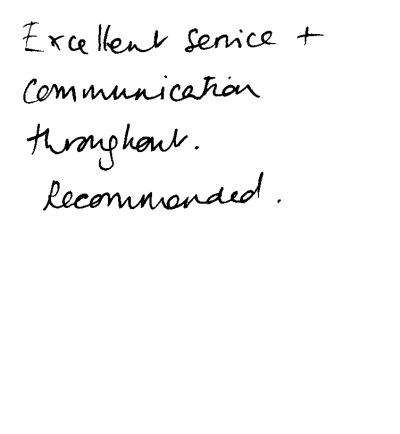 Excellent service +
communication
throughout.
Recommended.